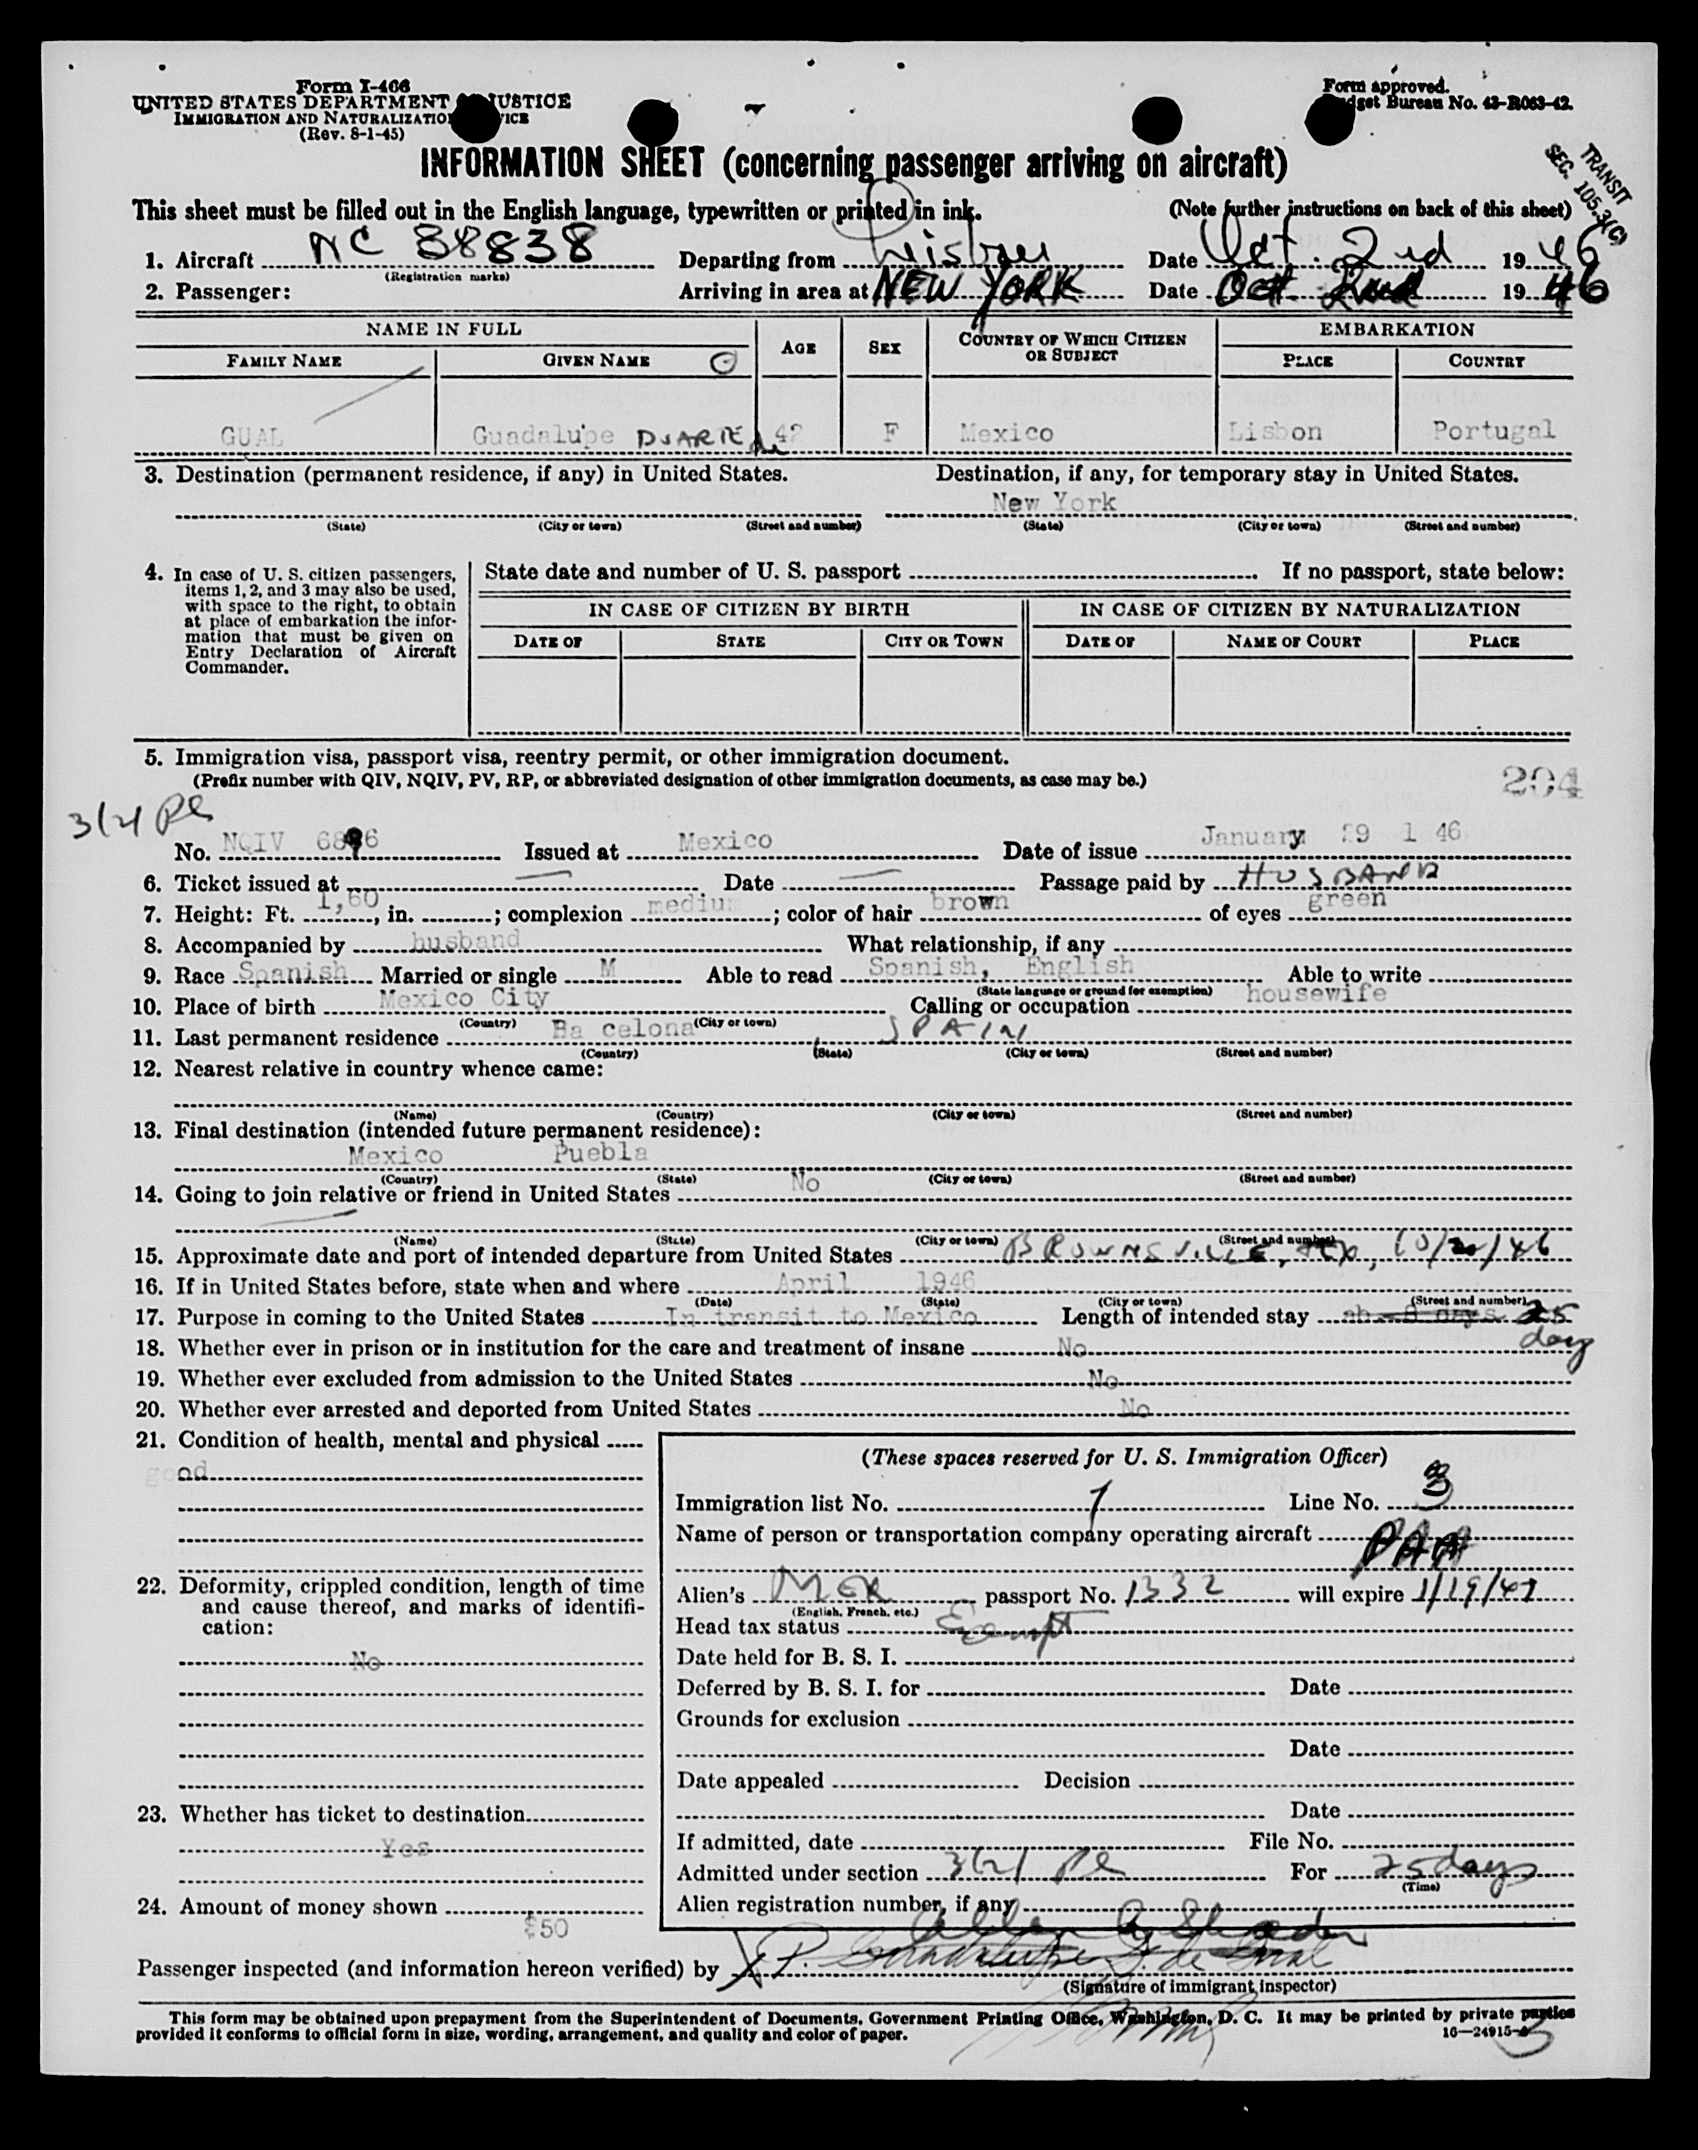 Form I-466
UNITED STATES DEPARTMENT JUSTICE
IMMIGRATION AND NATURALIZATION
(Rev. 8-1-45)
Form approved.
Budget Bureau No. 43-R063-42.
TRANSIT
SEC. 105.3(C)
INFORMATION SHEET (concerning passenger arriving on aircraft)
This sheet must be filled out in the English language, typewritten or printed in ink.
(Note further instructions on back of this sheet)
1. Aircraft NC 88838 Departing from Lisbon Date Oct. 2nd 1946
(Registration marks)
2. Passenger: Arriving in area at NEW YORK Date Oct 2nd 1946
NAME IN FULL AGE SEX COUNTRY OF WHICH CITIZEN OR SUBJECT EMBARKATION
FAMILY NAME GIVEN NAME PLACE COUNTRY
GUAL Guadalupe DUARTE de 42 F Mexico Lisbon Portugal
3. Destination (permanent residence, if any) in United States. Destination, if any, for temporary stay in United States.
New York
(State) (City or town) (Street and number) (State) (City or town) (Street and number)
4. In case of U. S. citizen passengers,
items 1, 2, and 3 may also be used,
with space to the right, to obtain
at place of embarkation the infor-
mation that must be given on
Entry Declaration of Aircraft
Commander.
State date and number of U. S. passport If no passport, state below:
IN CASE OF CITIZEN BY BIRTH IN CASE OF CITIZEN BY NATURALIZATION
DATE OF STATE CITY OR TOWN DATE OF NAME OF COURT PLACE
5. Immigration visa, passport visa, reentry permit, or other immigration document.
(Prefix number with QIV, NQIV, PV, RP, or abbreviated designation of other immigration documents, as case may be.)
204
3(2) PL
No. NQIV 6896 Issued at Mexico Date of issue January 29 1 46
6. Ticket issued at Date Passage paid by HUSBAND
7. Height: Ft. 1,60, in. ; complexion medium; color of hair brown of eyes green
8. Accompanied by husband What relationship, if any
9. Race Spanish Married or single M Able to read Spanish, English Able to write
(State language or ground for exemption)
10. Place of birth Mexico City Calling or occupation housewife
(Country) (City or town)
11. Last permanent residence Ba celona SPAIN
(Country) (State) (City or town) (Street and number)
12. Nearest relative in country whence came:
(Name) (Country) (City or town) (Street and number)
13. Final destination (intended future permanent residence):
Mexico Puebla
(Country) (State) (City or town) (Street and number)
14. Going to join relative or friend in United States No
(Name) (State) (City or town) (Street and number)
15. Approximate date and port of intended departure from United States BROWNSVILLE, TEX, 10/20/46
16. If in United States before, state when and where April 1946
(Date) (State) (City or town) (Street and number)
17. Purpose in coming to the United States In transit to Mexico Length of intended stay ab. 8 days 25
days
18. Whether ever in prison or in institution for the care and treatment of insane No
19. Whether ever excluded from admission to the United States No
20. Whether ever arrested and deported from United States No
21. Condition of health, mental and physical
good
22. Deformity, crippled condition, length of time
and cause thereof, and marks of identifi-
cation:
No
23. Whether has ticket to destination
Yes
24. Amount of money shown
$50
(These spaces reserved for U. S. Immigration Officer)
Immigration list No. 1 Line No. 3
Name of person or transportation company operating aircraft PAA
Alien's MEX passport No. 1332 will expire 1/19/47
(English, French, etc.)
Head tax status Exempt
Date held for B. S. I.
Deferred by B. S. I. for Date
Grounds for exclusion
Date
Date appealed Decision
Date
If admitted, date File No.
Admitted under section 3(2) PL For 25 days
(Time)
Alien registration number, if any
Passenger inspected (and information hereon verified) by
(Signature of immigrant inspector)
This form may be obtained upon prepayment from the Superintendent of Documents, Government Printing Office, Washington, D. C. It may be printed by private parties
provided it conforms to official form in size, wording, arrangement, and quality and color of paper.
16—24915-
3